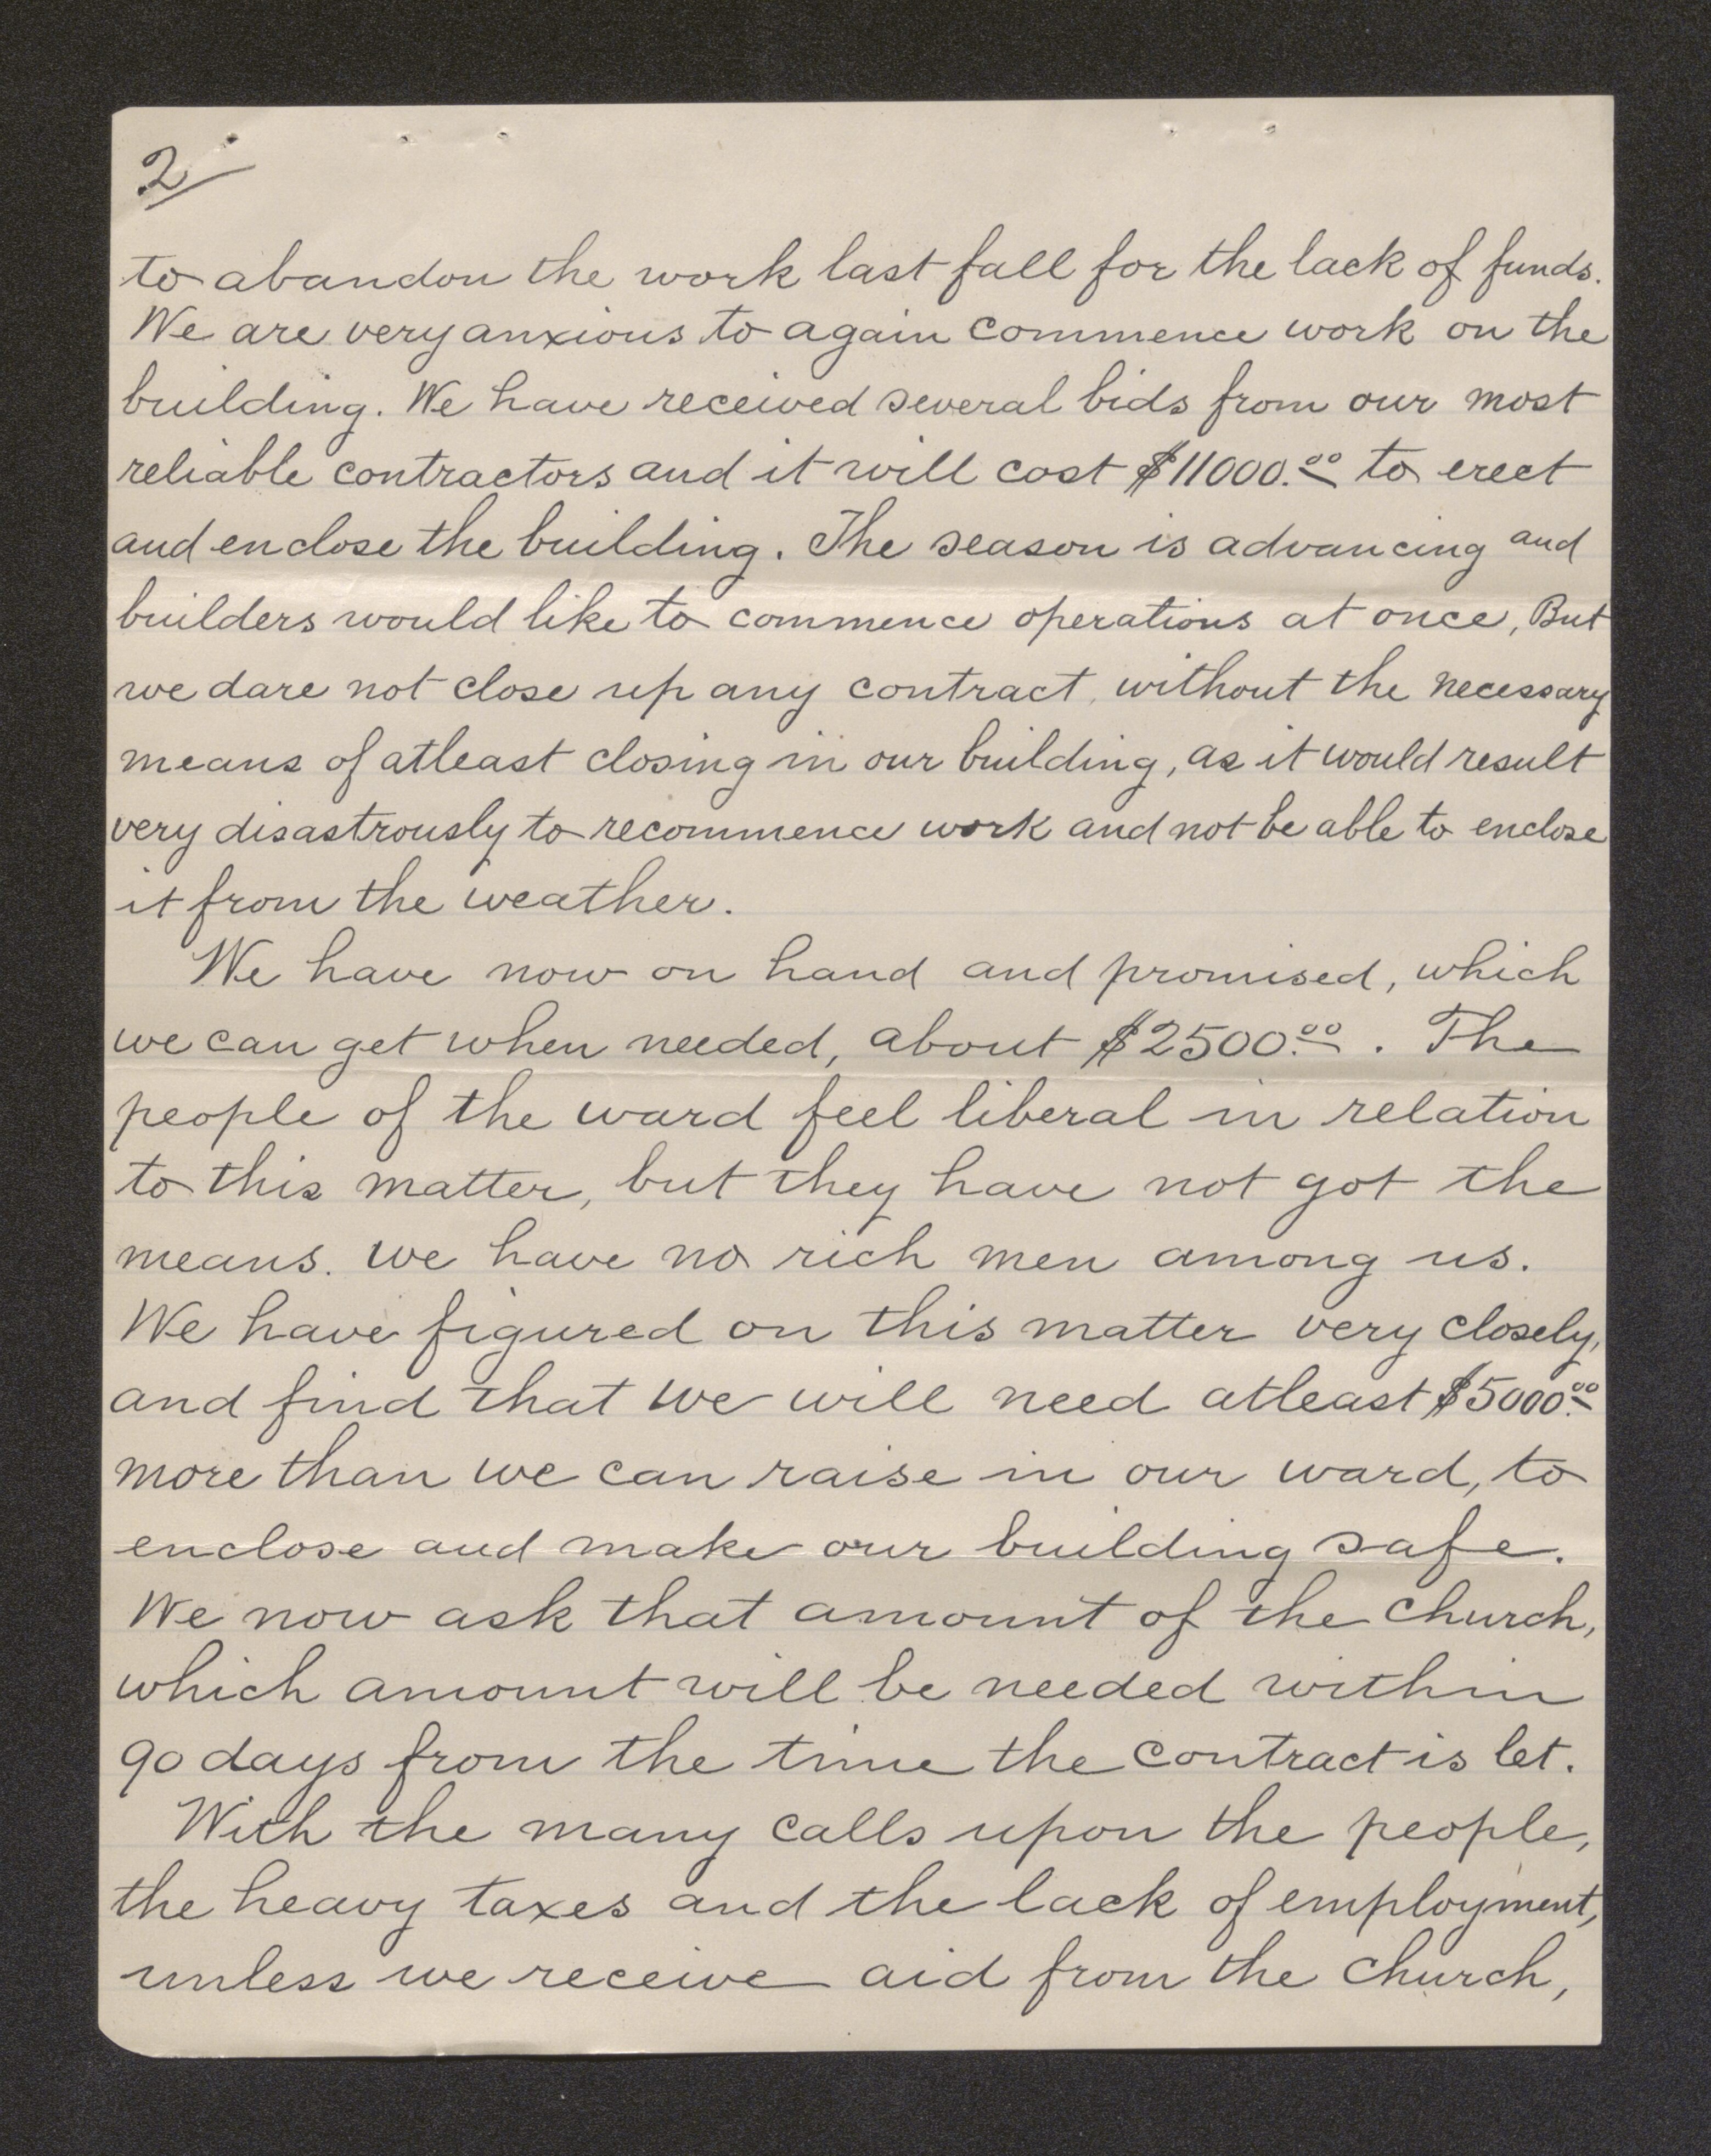 2
to abandon the work last fall for the lack of funds.
We are very anxious to again commence work on the
building. We have received several bids from our most
reliable contractors and it will cost $11000.00 to erect
and enclose the building. The season is advancing and
builders would like to commence operations at once, But
we dare not close up any contract, without the necessary
means of atleast closing in our building, as it would result
very disastrously to recommence work and not be able to enclose
it from the weather.
We have now on hand and promised, which
we can get when needed, about $2500.00. The
people of the ward feel liberal in relation
to this matter, but they have not got the
means. we have no rich men among us.
We have figured on this matter very closely,
and find that we will need atleast $5000.00
more than we can raise in our ward, to
enclose and make our building safe.
We now ask that amount of the church,
which amount will be needed within
90 days from the time the contract is let.
With the many calls upon the people,
the heavy taxes and the lack of employment,
unless we receive aid from the church,